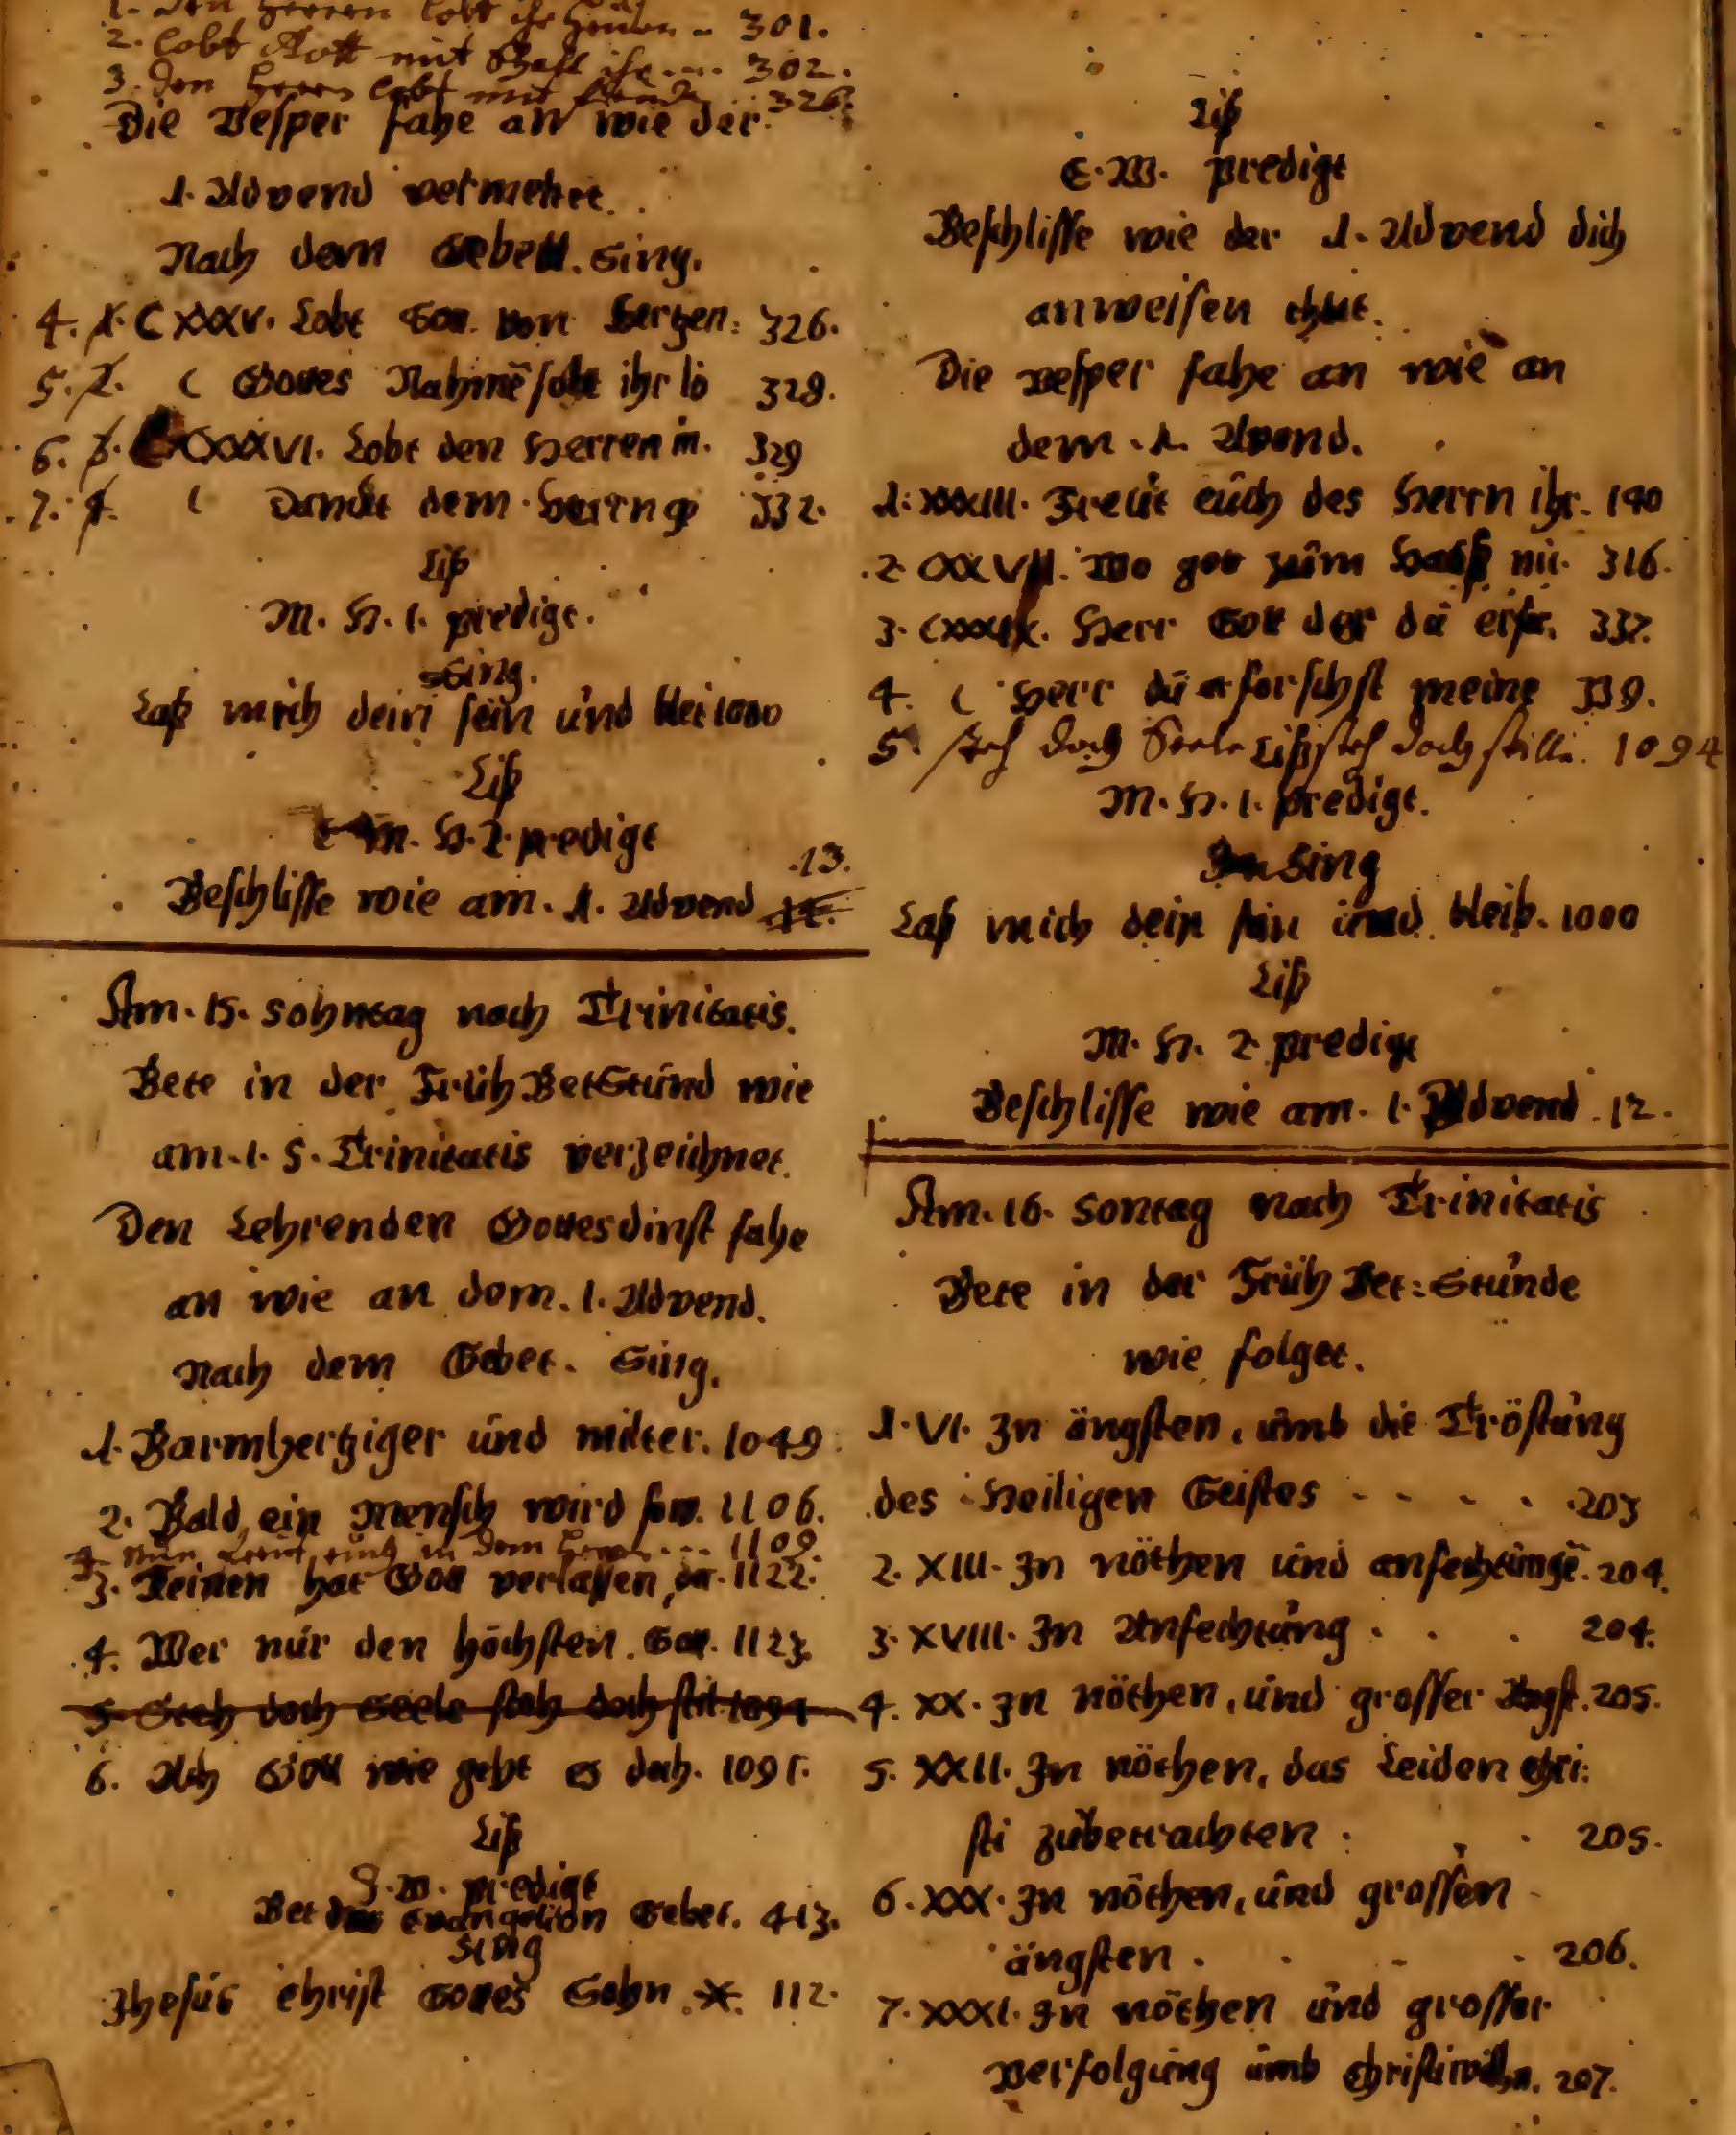 1. Den Herren lobt ihr Heiden .. 301.
2. Lobt Gott mit Schall ihr ... 302.
3. Den Herrn lobt mit Freuden .. 326.
Die Vesper fahe an wie der
1. Advend vermehret.
Nach dem Gebett. Sing.
4. 1. CXXXV. Lobt Gott von Hertzen: 326.
5. 2. ( Gottes Nahmē solt ihr lo 328.
6. 3. CXXXVI. Lobt den Herren in. 329
7. 4. ( Danckt dem Herrn ge 332.
Liß
M. H. 1. predigt.
Sing.
Laß mich dein sein und blei 1000
Liß
M. H. 2. predigt
13.
Beschlisse wie am. 1. Advend
Am. 15. Sohntag nach Trinitatis.
Bete in der Früh BetStund wie
am. 1. S. Trinitatis verzeichnet.
Den Lehrenden Gottesdinst fahe
an wie an dem. 1. Advend.
Nach dem Gebet. Sing.
1. Barmhertziger und milter. 1049.
2. Bald ein Mensch wird 1106.
Nun freut euch in dem Herrn ... 1109
3. Keinen hat Gott verlassen, der. 1122.
4. Wer nur den höchsten. Got. 1123.
5 Steh doch Seele steh doch stil. 1094
6. Ach Gott wie geht es doch. 1091.
Liß
predigt
Bet das Evangelion Gebet. 413.
Sing
Jhesus Christ Gottes Sohn. *. 112.
Liß
E. W. predigt
Beschlisse wie der 1. Advend dich
anweisen thut.
Die vesper fahe an wie an
dem. 1. Avend.
1. XXXIII. Freut euch des Herrn ihr. 190
2. CXXVII. Wo got zum Hauß ni. 316.
3. CXXXIX. Herr Gott der du erfor. 337.
4. ( Herr du erforschst meine 339.
5. steh doch Seele steh doch stille. 1094
Liß
M. H. 1. predigt.
Sing
Laß mich dein sein und bleib. 1000
Liß
M. H. 2. predigt
Beschlisse wie am. 1. Advend. 12.
Am. 16. Sontag nach Trinitatis
Bete in der Früh Bet: Stunde
wie folget.
1. VI. In ängsten, umb die Tröstung
des Heiligen Geistes - - - . 203
2. XIII. In nöthen und anfechtungē. 204.
3. XVIII. In Anfechtung . . . 204.
4. XX. In nöthen, und grosser Angst. 205.
5. XXII. In nöthen, das Leiden Chri:
sti zubetrachten : . . 205.
6. XXX. In nöthen, und grossen
ängsten . . - . 206.
7. XXXI. In nöthen und grosser
verfolgung umb Christi willen. 207.